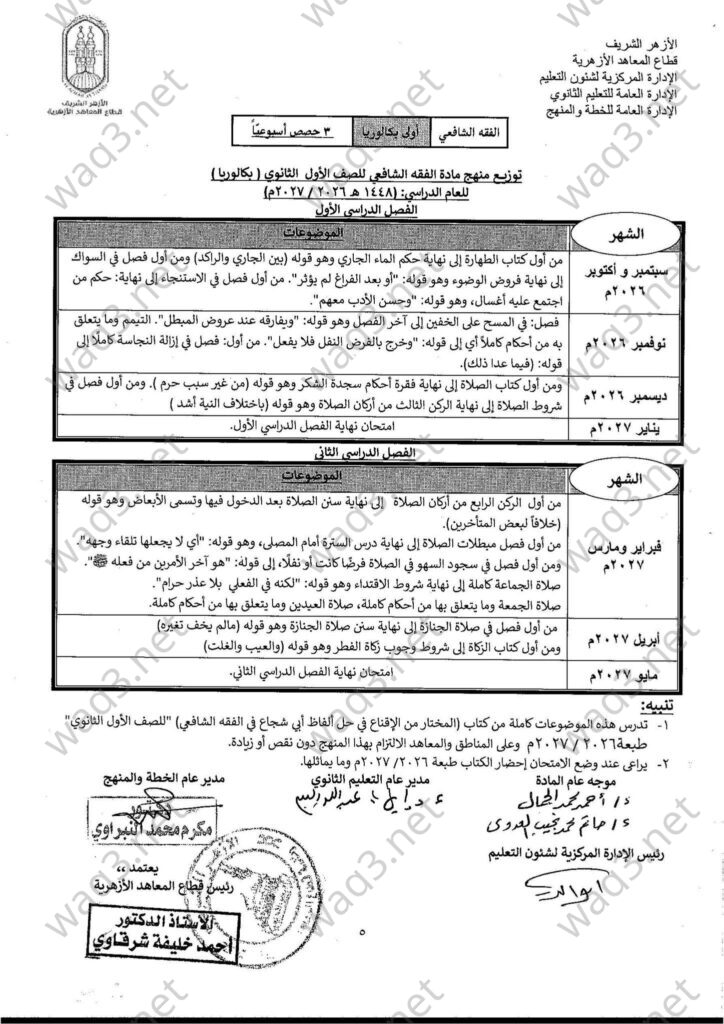 الأزهر الشريف
قطاع المعاهد الأزهرية
الإدارة المركزية لشئون التعليم
الإدارة العامة للتعليم الثانوي
الإدارة العامة للخطة والمنهج
الأزهر الشريف
قطاع المعاهد الأزهرية
الفقه الشافعي
أولى بكالوريا
٣ حصص أسبوعيًّا
توزيع منهج مادة الفقه الشافعي للصف الأول الثانوي ( بكالوريا )
للعام الدراسي: (١٤٤٨ هـ ٢٠٢٦ / ٢٠٢٧م)
الفصل الدراسي الأول
الشهر
الموضوعات
سبتمبر و أكتوبر
٢٠٢٦م
من أول كتاب الطهارة إلى نهاية حكم الماء الجاري وهو قوله (بين الجاري والراكد) ومن أول فصل في السواك
إلى نهاية فروض الوضوء وهو قوله: "أو بعد الفراغ لم يؤثر". من أول فصل في الاستنجاء إلى نهاية: حكم من
اجتمع عليه أغسال، وهو قوله: "وحسن الأدب معهم".
نوفمبر ٢٠٢٦م
فصل: في المسح على الخفين إلى آخر الفصل وهو قوله: "ويفارقه عند عروض المبطل". التيمم وما يتعلق
به من أحكام كاملاً أي إلى قوله: "وخرج بالفرض النفل فلا يفعل". من أول: فصل في إزالة النجاسة كاملًا إلى
قوله: (فيما عدا ذلك).
ديسمبر ٢٠٢٦م
ومن أول كتاب الصلاة إلى نهاية فقرة أحكام سجدة الشكر وهو قوله (من غير سبب حرم ). ومن أول فصل في
شروط الصلاة إلى نهاية الركن الثالث من أركان الصلاة وهو قوله (باختلاف النية أشد )
يناير ٢٠٢٧م
امتحان نهاية الفصل الدراسي الأول.
الفصل الدراسي الثاني
الشهر
الموضوعات
فبراير ومارس
٢٠٢٧م
من أول الركن الرابع من أركان الصلاة إلى نهاية سنن الصلاة بعد الدخول فيها وتسمى الأبعاض وهو قوله
(خلافاً لبعض المتأخرين).
من أول فصل مبطلات الصلاة إلى نهاية درس السترة أمام المصلى، وهو قوله: "أي لا يجعلها تلقاء وجهه".
ومن أول فصل في سجود السهو في الصلاة فرضًا كانت أو نفلًا، إلى قوله: "هو آخر الأمرين من فعله ﷺ".
صلاة الجماعة كاملة إلى نهاية شروط الاقتداء وهو قوله: "لكنه في الفعلي بلا عذر حرام".
صلاة الجمعة وما يتعلق بها من أحكام كاملة، صلاة العيدين وما يتعلق بها من أحكام كاملة.
أبريل ٢٠٢٧م
من أول فصل في صلاة الجنازة إلى نهاية سنن صلاة الجنازة وهو قوله (مالم يخف تغيره)
ومن أول كتاب الزكاة إلى شروط وجوب زكاة الفطر وهو قوله (والعيب والغلت)
مايو ٢٠٢٧م
امتحان نهاية الفصل الدراسي الثاني.
تنبيه:
١- تدرس هذه الموضوعات كاملة من كتاب (المختار من الإقناع في حل ألفاظ أبي شجاع في الفقه الشافعي) "للصف الأول الثانوي"
طبعة ٢٠٢٦ / ٢٠٢٧م وعلى المناطق والمعاهد الالتزام بهذا المنهج دون نقص أو زيادة.
٢- يراعى عند وضع الامتحان إحضار الكتاب طبعة ٢٠٢٦/ ٢٠٢٧م وما يماثلها.
موجه عام المادة
مدير عام التعليم الثانوي
مدير عام الخطة والمنهج
د/ أحمد محمد الجمال
د/ حاتم محمد نجيب العدوى
مكرم محمد النبراوي
رئيس الإدارة المركزية لشئون التعليم
يعتمد ،،
رئيس قطاع المعاهد الأزهرية
الأستاذ الدكتور
أحمد خليفة شرقاوي
٥
waq3.net